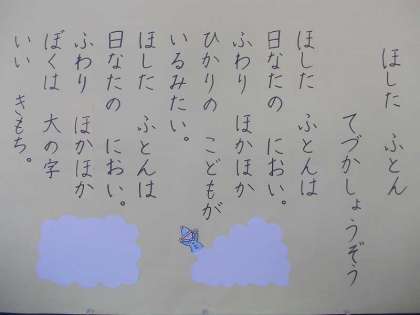 ほした ふとん
てづかしょうぞう
ほした ふとんは
日なたの におい。
ふわり ほかほか
ひかりの こどもが
いるみたい。
ほした ふとんは
日なたの におい。
ふわり ほかほか
ぼくは 大の字
いい きもち。